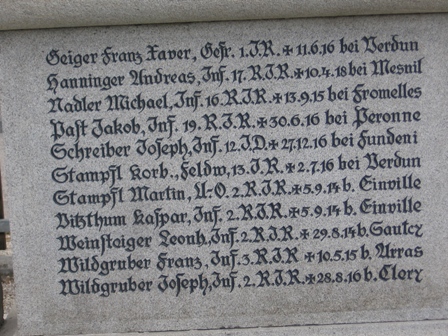 Geiger Franz Xaver, Gefr. 1.I.R. ✠ 11.6.16 bei Verdun
Hanninger Andreas, Inf. 17.R.I.R. ✠ 10.4.18 bei Mesnil
Nadler Michael, Inf. 16.R.I.R. ✠ 13.9.15 bei Fromelles
Past Jakob, Inf. 19.R.I.R. ✠ 30.6.16 bei Peronne
Schreiber Joseph, Inf. 12.I.D. ✠ 27.12.16 bei Fundeni
Stampfl Korb., Feldw. 13.I.R. ✠ 2.7.16 bei Verdun
Stampfl Martin, U-O. 2.R.I.R. ✠ 5.9.14 b. Einville
Vitzthum Kaspar, Inf. 2.R.I.R. ✠ 5.9.14 b. Einville
Weinsteiger Leonh., Inf. 2.R.I.R. ✠ 29.8.14 b. Saulcy
Wildgruber Franz, Inf. 3.R.I.R ✠ 10.5.15 b. Arras
Wildgruber Joseph, Inf. 2.R.I.R. ✠ 28.8.16 b. Clery